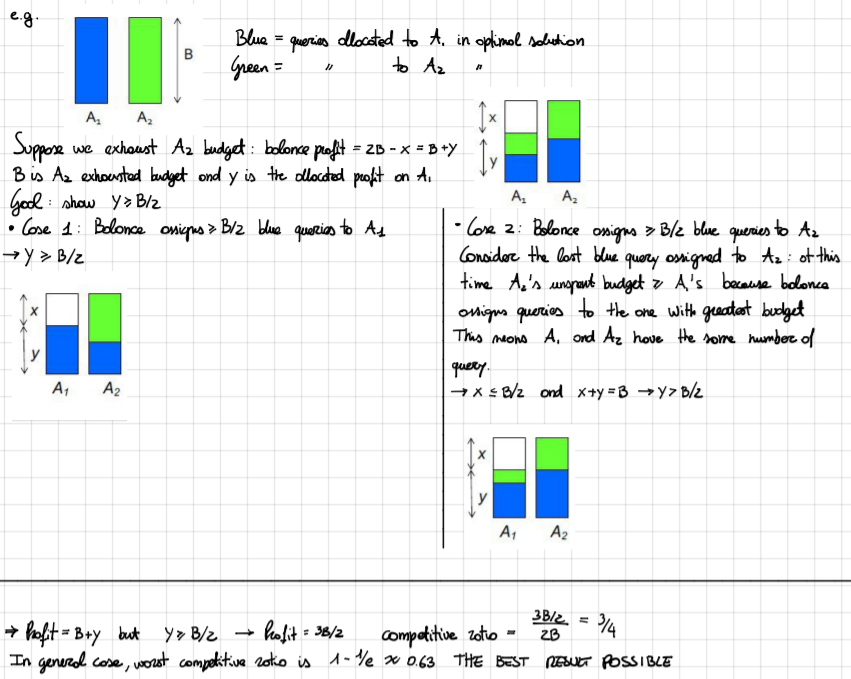 e.g.
B
A₁ A₂
Blue = queries allocated to A₁ in optimal solution
Green = " to A₂ "
Suppose we exhaust A₂ budget : balance profit = 2B - x = B + y
B is A₂ exhausted budget and y is the allocated profit on A₁
Goal : show y ≥ B/2
x
y
A₁ A₂
• Case 1 : Balance assigns ≥ B/2 blue queries to A₁
→ y ≥ B/2
x
y
A₁ A₂
• Case 2 : Balance assigns ≥ B/2 blue queries to A₂
Consider the last blue query assigned to A₂ : at this
time A₂'s unspent budget ≥ A₁'s because balance
assigns queries to the one with greatest budget
This means A₁ and A₂ have the same number of
query.
→ x ≤ B/2 and x+y = B → y > B/2
x
y
A₁ A₂
⇒ Profit = B+y but y ≥ B/2 → Profit = 3B/2 competitive ratio = 3B/2 / 2B = 3/4
In general case, worst competitive ratio is 1 - 1/e ≈ 0.63 THE BEST RESULT POSSIBLE